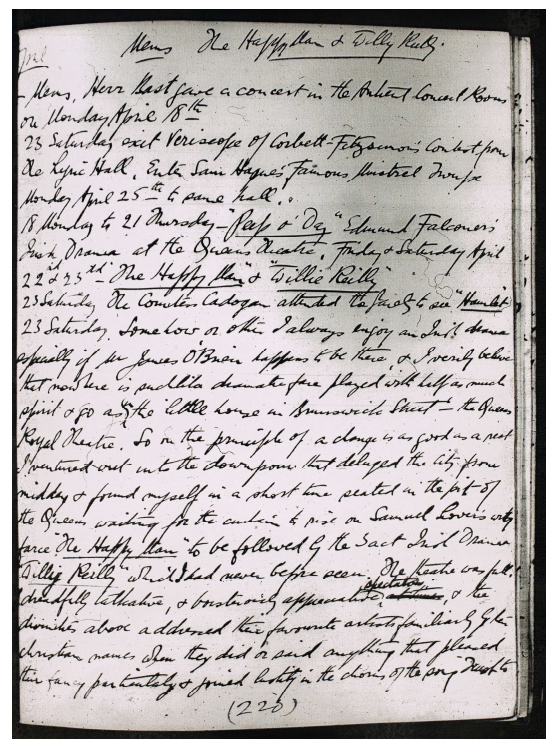 Mems The Happy Man & Willy Reilly.
- Mems, Herr Mast gave a concert in the Antient Concert Rooms
on Monday April 18th
23 Saturday exit Veriscope of Corbett-Fitzsimons Contest from
the Lyric Hall. Enter Sam Hagues Famous Minstrel Troupe
Monday April 25th to same hall.
18 Monday to 21 Thursday - "Peep o' Day" Edmund Falconer's
Irish Drama at the Queens Theatre. Friday & Saturday April
22nd & 23rd - "The Happy Man" & "Willie Reilly"
23 Saturday The Countess Cadogan attended the Gaiety to see "Hamlet"
23 Saturday. Somehow or other I always enjoy an Irish drama
especially if Mr James O'Brien happens to be there, & I verily believe
that nowhere is such like dramatic fare played with half as much
spirit & go as in the little house in Brunswick Street - the Queens
Royal Theatre. So on the principle of a change is as good as a rest
I ventured out into the downpour that deluged the city from
midday & found myself in a short time seated in the pit of
the Queens waiting for the curtain to rise on Samuel Lovers witty
farce "The Happy Man" to be followed by the 3 act Irish Drama
"Willie Reilly" which I had never before seen. The theatre was full,
dreadfully talkative, & boisterously appreciative, & the
divinities above addressed their favourite artists familiarly by their
christian names when they did or said anything that pleased
their fancy particularly & joined lustily in the chorus of the song
(220)